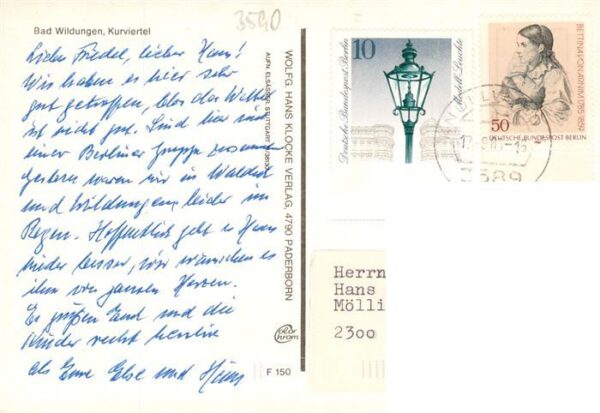 3590
Bad Wildungen, Kurviertel
Liebe Friedel, lieber Hans!
Wir haben es hier sehr
gut getroffen, blos das Wetter
ist nicht gut. Sind hier mit
einer Berliner Gruppe zusammen
gestern waren wir in Waldeck
und Wildungen leider im
Regen. Hoffentlich geht es Hans
wieder besser, wir wünschen es
ihm von ganzen Herzen.
Es grüßen Euch und die
Kinder recht herzlich
als Eure Else und Heinz
AUFN. ELSÄSSER, STUTTGART
WOLFG. HANS KLOCKE VERLAG, 4790 PADERBORN
color
chrom
F 150
10
Deutsche Bundespost Berlin
Modell-Leuchte
BETTINA VON ARNIM 1785-1859
50
DEUTSCHE BUNDESPOST BERLIN
3589
Herrn
Hans
Mölli
2300